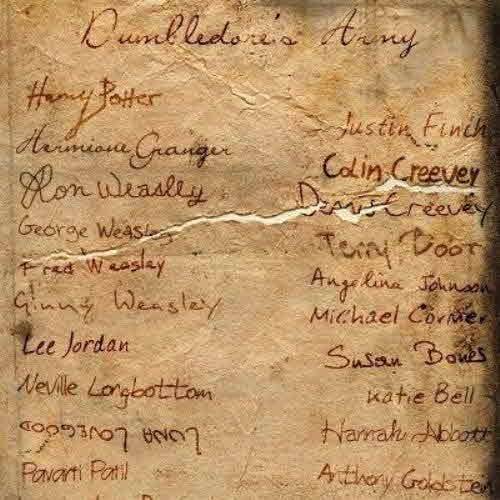 Dumbledore's Army
Harry Potter
Hermione Granger
Ron Weasley
George Weasley
Fred Weasley
Ginny Weasley
Lee Jordan
Neville Longbottom
LUNA LOVEGOOD
Pavarti Patil
Justin Finch
Colin Creevey
Dennis Creevey
Terry Boot
Angelina Johnson
Michael Corner
Susan Bones
Katie Bell
Hannah Abbott
Anthony Goldstein